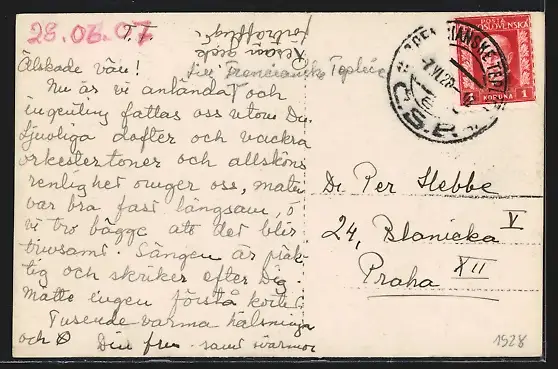 29.02.07
T. T.
Älskade vän!
Nu äs vi anländat och
ingenting fattas oss utom Du.
Ljuvliga dofter och vackra
orkestertoner och allsköns
renlighet omger oss, maten
var bra fast långsam, o
vi tro bägge att det blir
trivsamt. Sängen är präk-
tig och skriker efter Dig.
Måtte ingen förstå kortet
Tusende varma hälsningar
och
Din fru - samt svärmor
Resan gick
Trencianske Teplice
POSTA
KORUNA 1
Č.S.P.
Dr. Per Hebbe
24, Blanicka V
Praha XII
1928